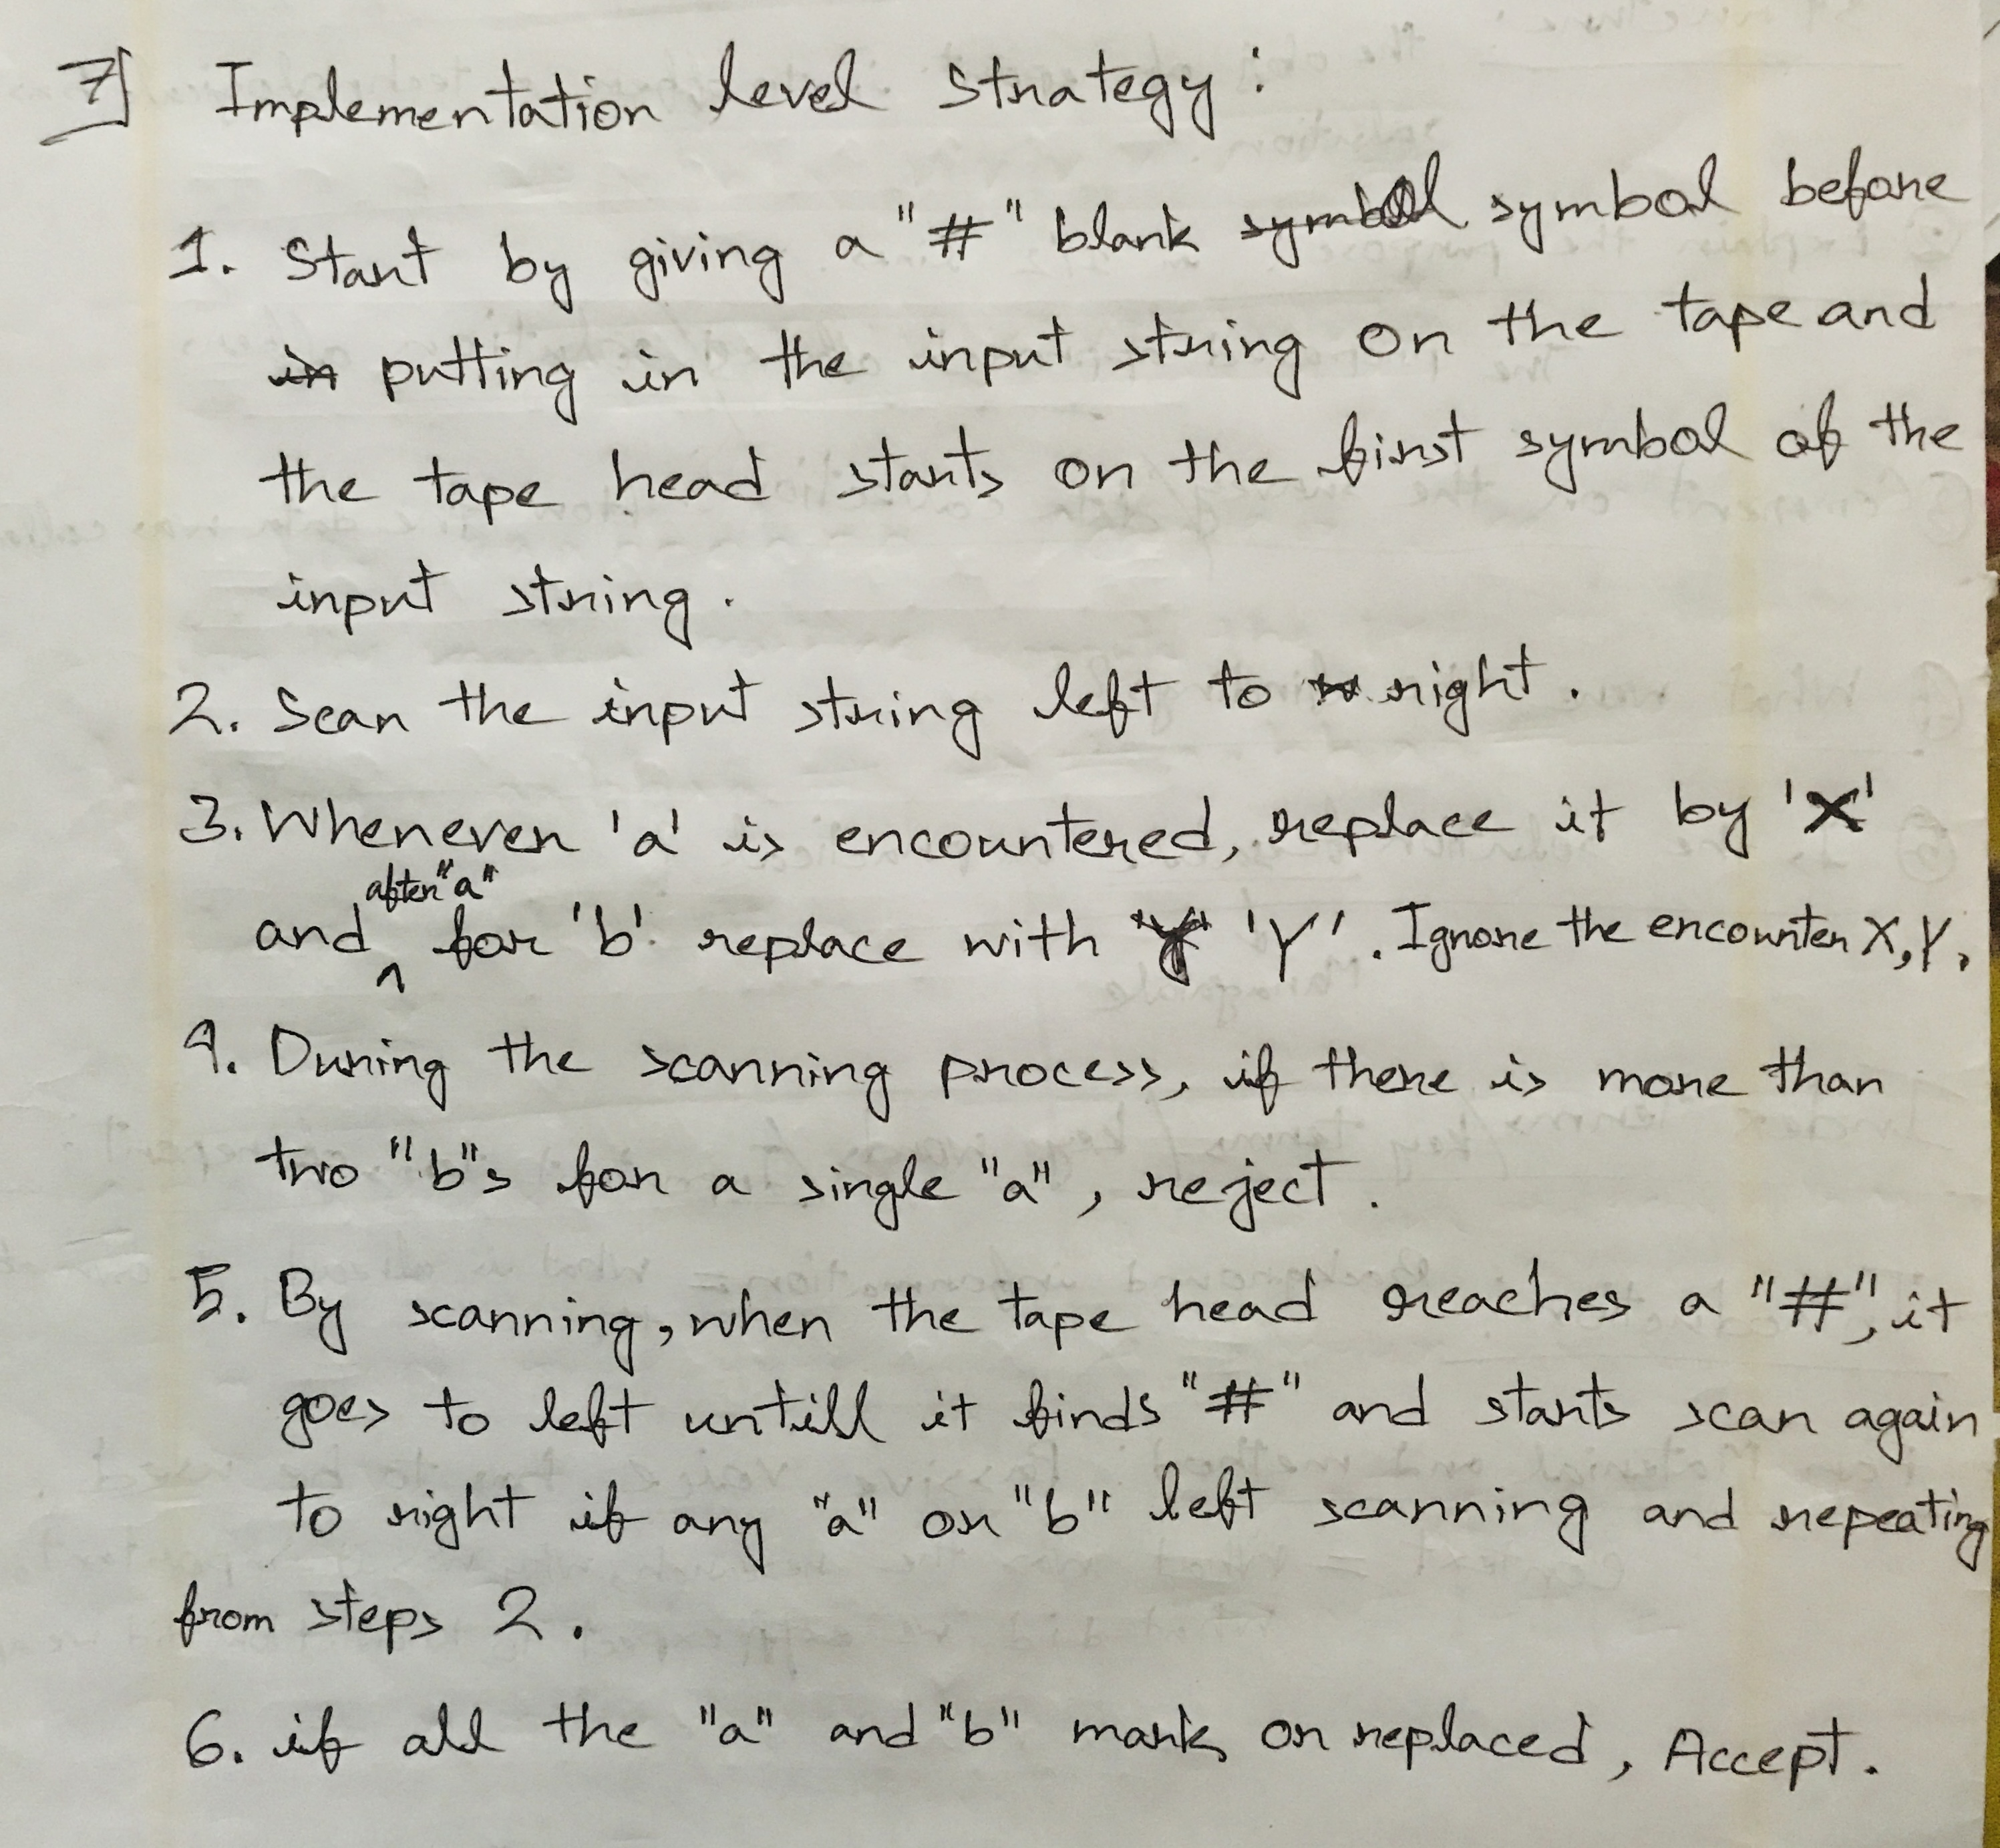 7] Implementation level strategy:
1. Start by giving a "#" blank symbol symbol before
in putting in the input string on the tape and
the tape head starts on the first symbol of the
input string.
2. Scan the input string left to right.
3. Whenever 'a' is encountered, replace it by 'X'
and after "a" for 'b' replace with 'Y' 'Y'. Ignore the encounter X,Y.
4. During the scanning process, if there is more than
two "b"s for a single "a", reject.
5. By scanning, when the tape head reaches a "#", it
goes to left untill it finds "#" and starts scan again
to right if any "a" or "b" left scanning and repeating
from steps 2.
6. if all the "a" and "b" mark or replaced, Accept.